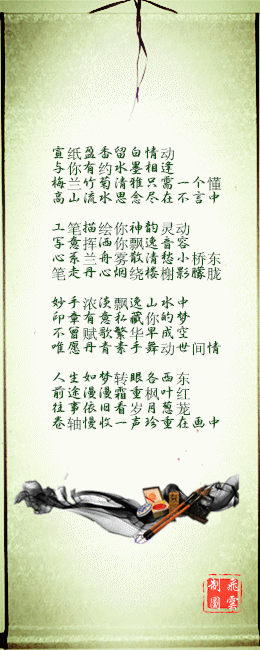 宣纸盈香留白情动
与你有约水墨相逢
梅兰竹菊清雅只需一个懂
高山流水思念尽在不言中
工笔描绘你神韵灵动
写意挥洒你飘逸音容
心系兰舟雾散清愁小桥东
笔走丹心烟绕楼榭影朦胧
妙手浓淡飘逸山水中
印章有意私藏你的梦
不曾赋歌繁华早成空
唯愿丹青素手舞动世间情
人生如梦转眼各西东
前途漫漫霜重枫叶红
往事依旧看岁月葱茏
卷轴慢收一声珍重在画中
飞云制图